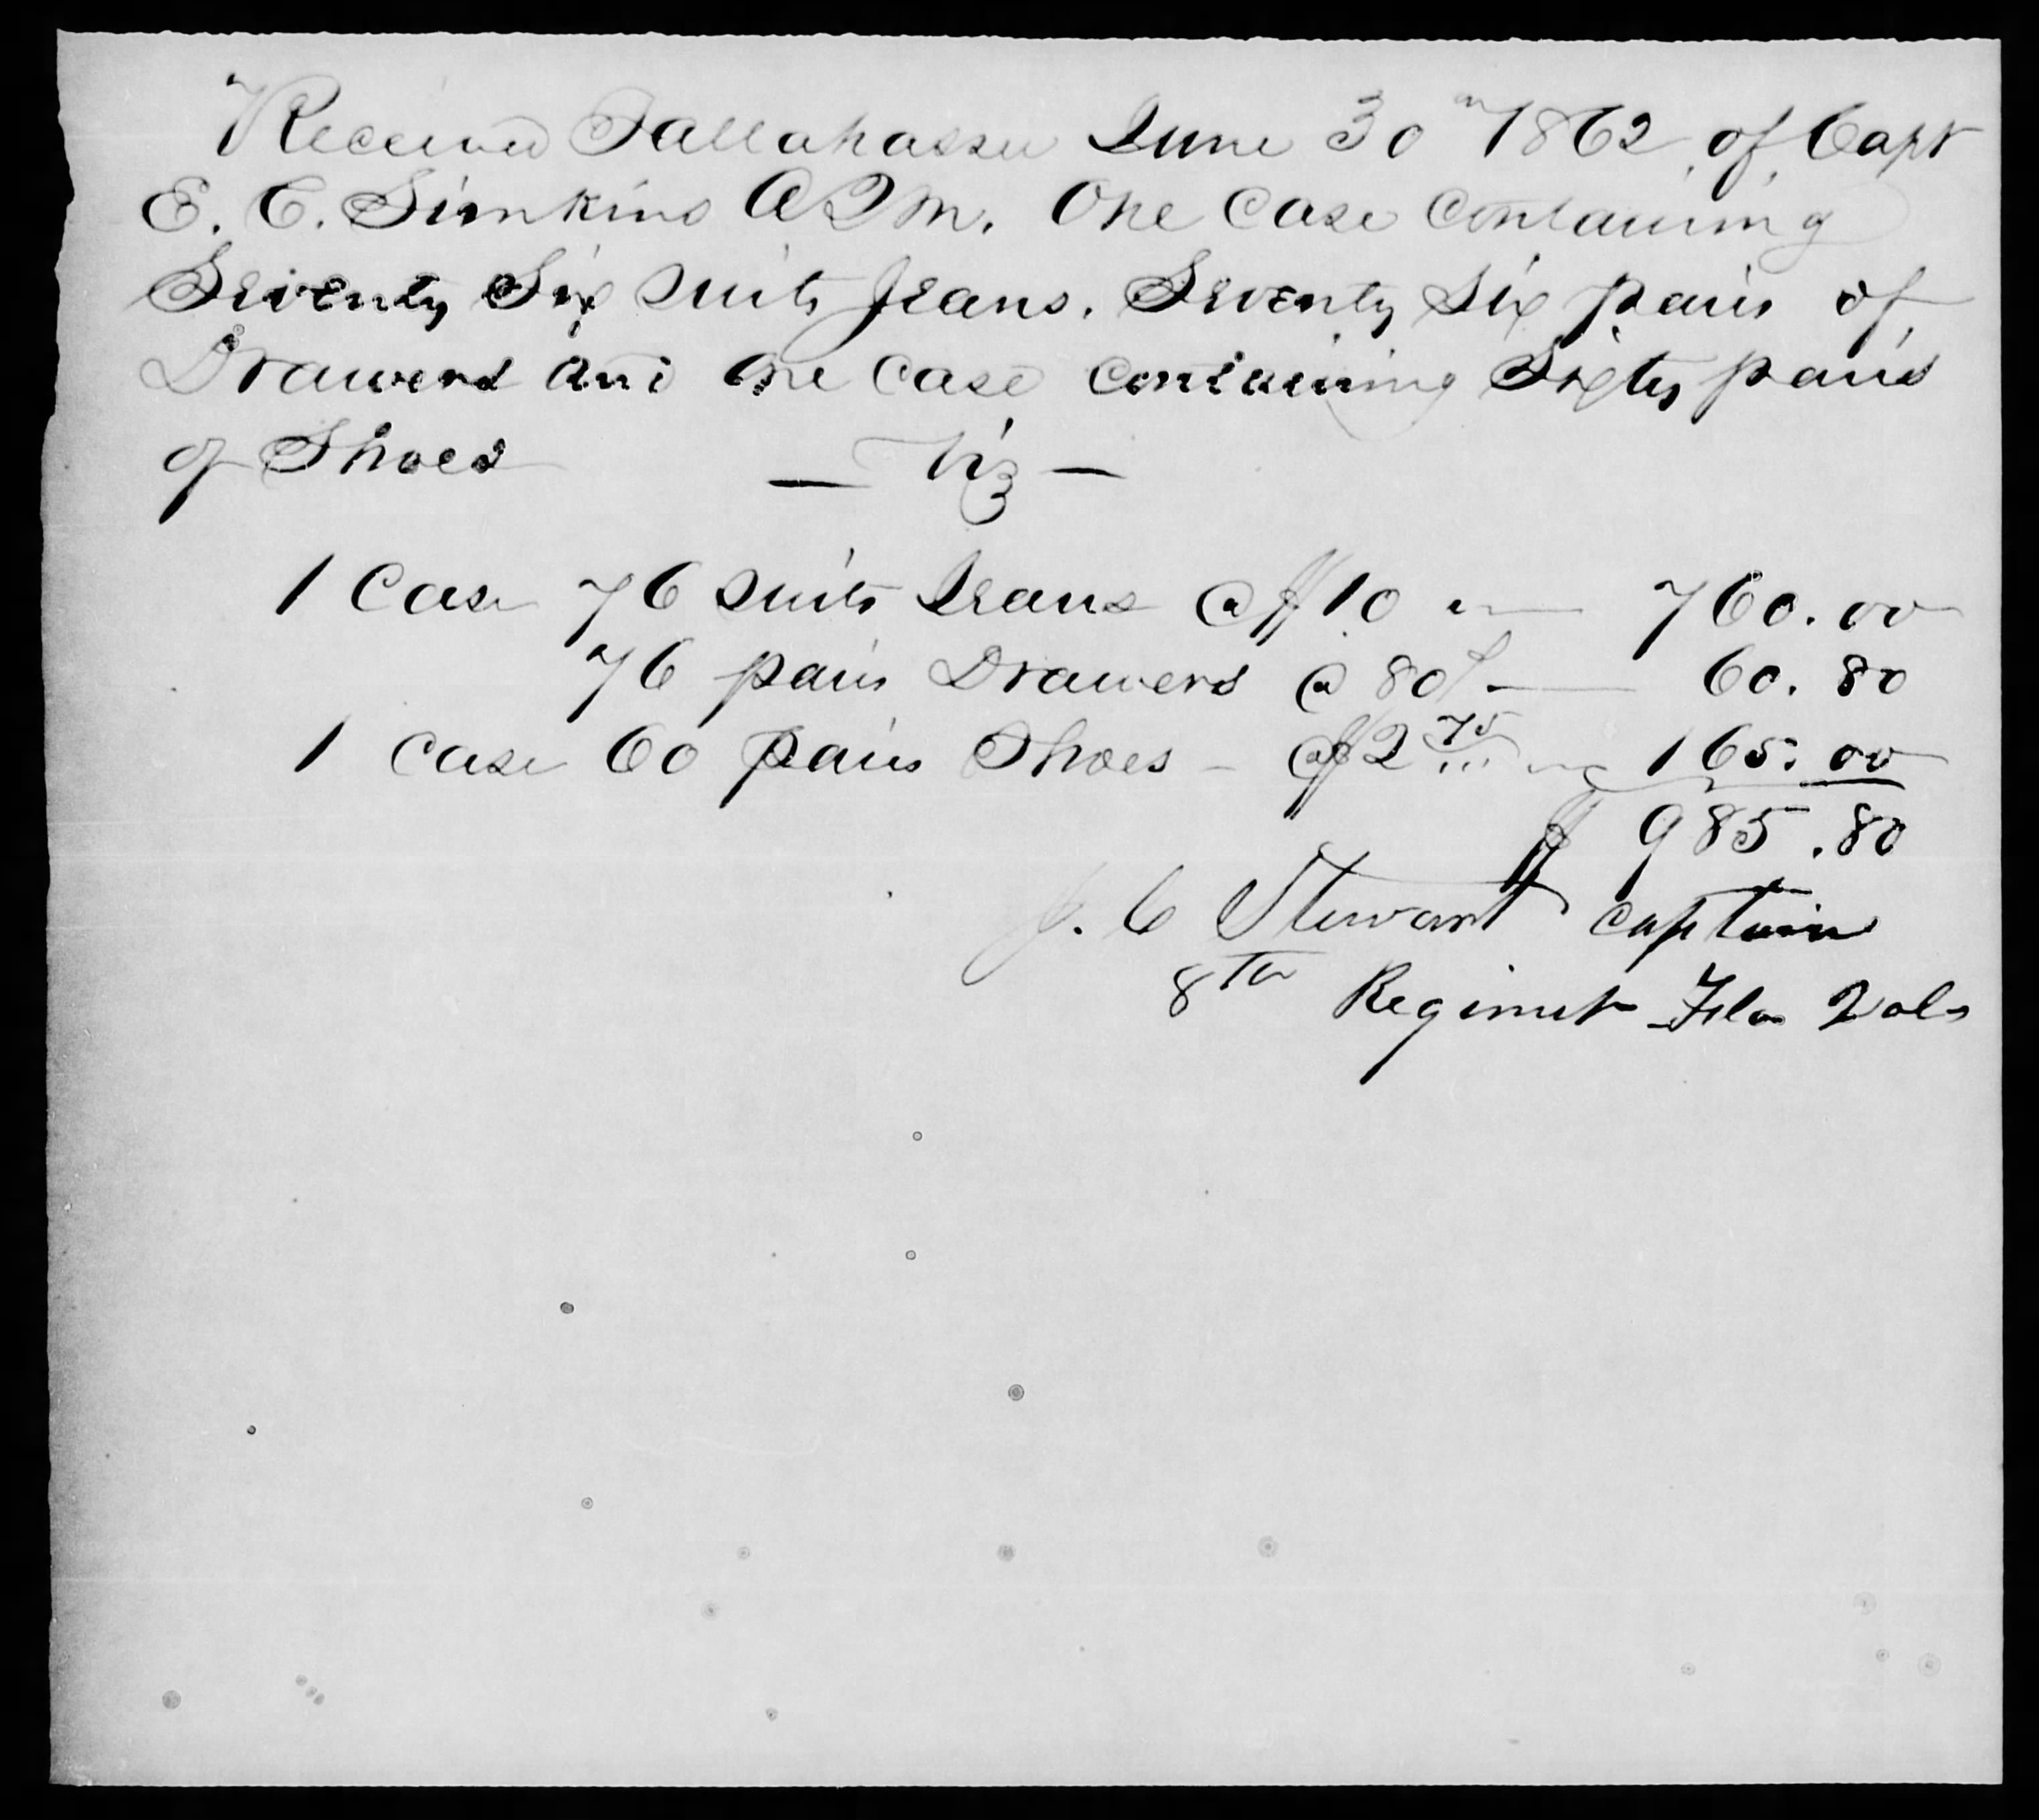 Received Tallahassee June 30th 1862 of Capt
E. C. Simkins AQM. One Case Containing
Seventy Six suits Jeans. Seventy Six pairs of
Drawers and One Case containing Sixty pairs
of Shoes — Viz —
1 Case 76 suits Jeans @ $10 — 760.00
76 pairs Drawers @ 80¢ — 60.80
1 Case 60 pairs Shoes - @ $2 75 165.00
$ 985.80
J. C Stewart Captain
8th Regimet Flo Vols